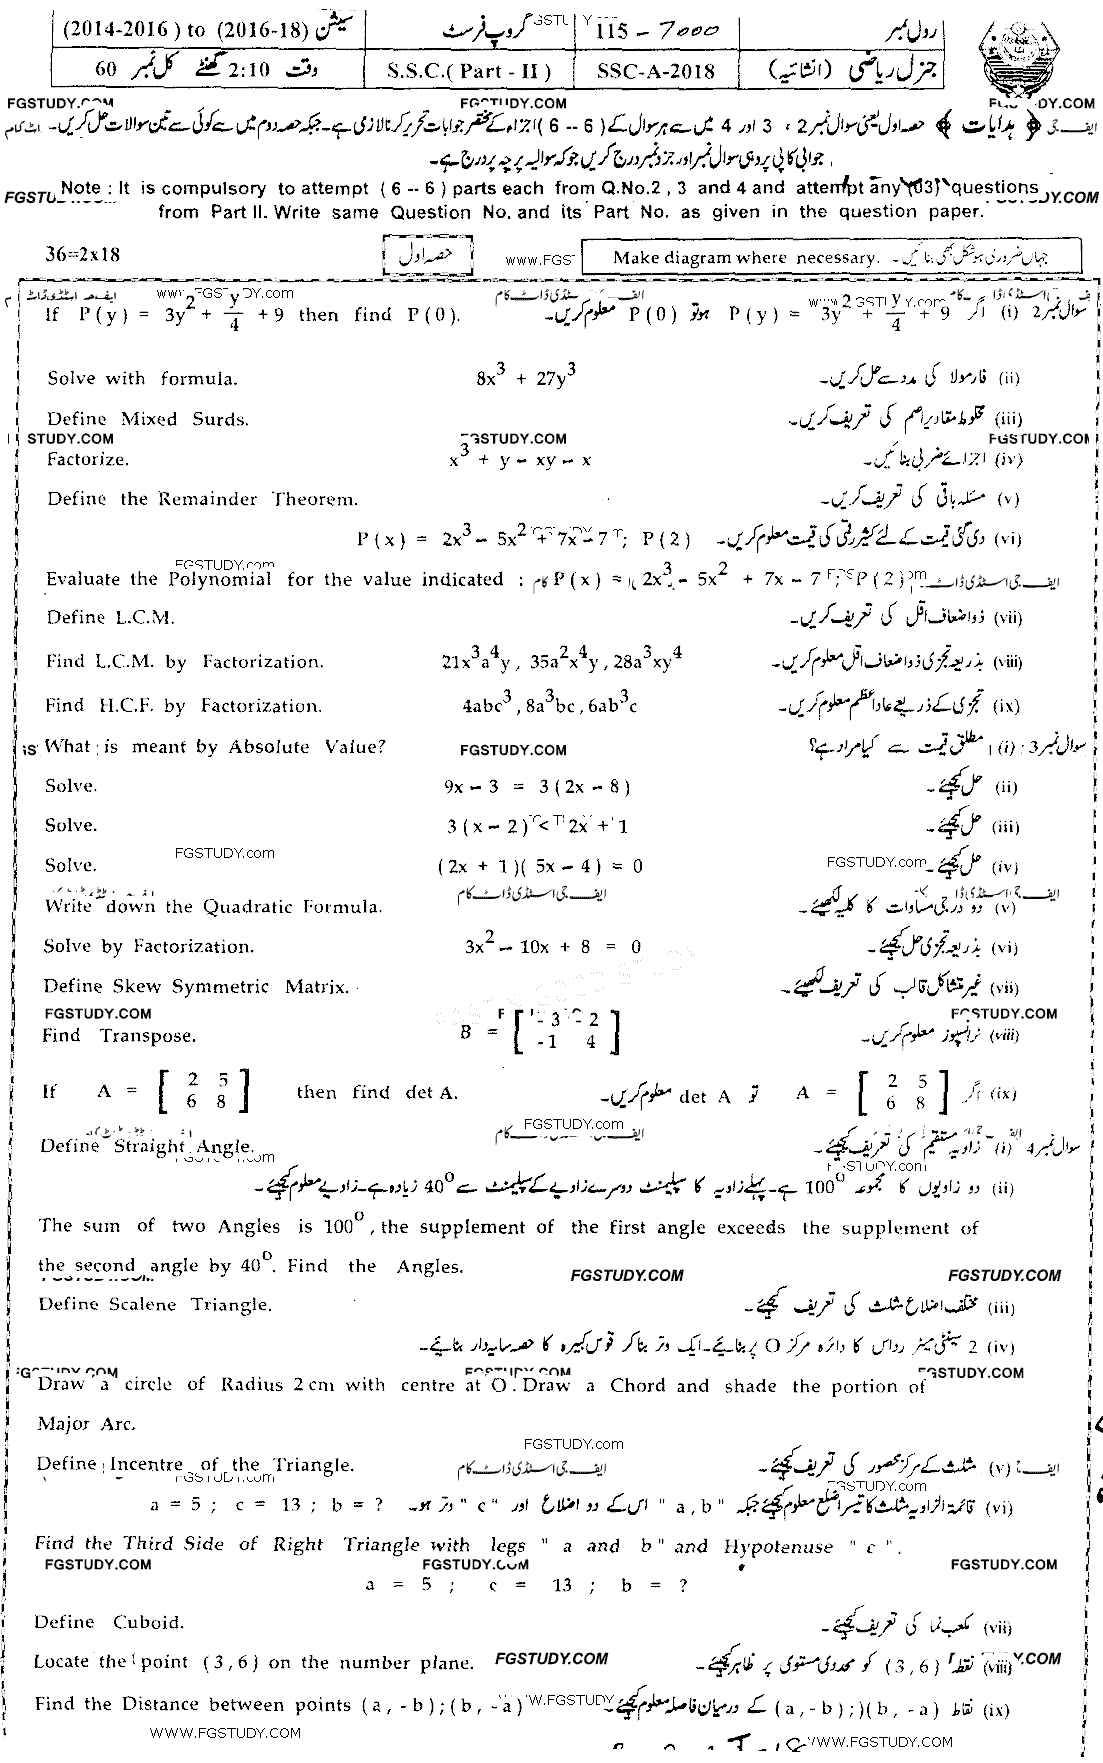 (2014-2016 ) to (2016-18) سیشن گروپ فرسٹ 115 - 7000 رول نمبر
وقت 2:10 گھنٹے کل نمبر 60 S.S.C.( Part - II ) SSC-A-2018 جنرل ریاضی (انشائیہ)
FGSTUDY.COM FGSTUDY.COM
﴿ ہدایات ﴾ حصہ اول یعنی سوال نمبر 2 ، 3 اور 4 میں سے ہر سوال کے ( 6 -- 6 ) اجزاء کے مختصر جوابات تحریر کرنا لازمی ہے۔ جبکہ حصہ دوم میں سے کوئی سے تین سوالات حل کریں۔
جوابی کاپی پر وہی سوال نمبر اور جز نمبر درج کریں جو کہ سوالیہ پرچہ پر درج ہے۔
Note : It is compulsory to attempt ( 6 -- 6 ) parts each from Q.No.2 , 3 and 4 and attempt any (03) questions
from Part II. Write same Question No. and its Part No. as given in the question paper.
36=2x18 حصہ اول Make diagram where necessary. جہاں ضروری ہو شکل بھی بنائیں۔
If P(y) = 3y² + y/4 + 9 then find P(0). سوال نمبر 2 (i) اگر P(y) = 3y² + y/4 + 9 ہو تو P(0) معلوم کریں۔
Solve with formula. 8x³ + 27y³ (ii) فارمولا کی مدد سے حل کریں۔
Define Mixed Surds. (iii) مخلوط مقادیر اصم کی تعریف کریں۔
STUDY.COM FGSTUDY.COM FGSTUDY.COM
Factorize. x³ + y – xy – x (iv) اجزائے ضربی بنائیں۔
Define the Remainder Theorem. (v) مسئلہ باقی کی تعریف کریں۔
P(x) = 2x³ – 5x² + 7x – 7 ; P(2) (vi) دی گئی قیمت کے لئے کثیر رقمی کی قیمت معلوم کریں۔
FGSTUDY.com
Evaluate the Polynomial for the value indicated : P(x) = 2x³ – 5x² + 7x – 7 ; P(2)
Define L.C.M. (vii) ذواضعاف اقل کی تعریف کریں۔
Find L.C.M. by Factorization. 21x³a⁴y , 35a²x⁴y , 28a³xy⁴ (viii) بذریعہ تجزی ذواضعاف اقل معلوم کریں۔
Find H.C.F. by Factorization. 4abc³ , 8a³bc , 6ab³c (ix) تجزی کے ذریعے عاد اعظم معلوم کریں۔
What is meant by Absolute Value? FGSTUDY.COM سوال نمبر 3 : (i) مطلق قیمت سے کیا مراد ہے؟
Solve. 9x – 3 = 3(2x – 8) (ii) حل کیجئے۔
Solve. 3(x – 2) < 2x + 1 (iii) حل کیجئے۔
FGSTUDY.com
Solve. (2x + 1)(5x – 4) = 0 FGSTUDY.com (iv) حل کیجئے۔
Write down the Quadratic Formula. (v) دو درجی مساوات کا کلیہ لکھیئے۔
Solve by Factorization. 3x² – 10x + 8 = 0 (vi) بذریعہ تجزی حل کیجئے۔
Define Skew Symmetric Matrix. (vii) غیر متشاکل قالب کی تعریف لکھیئے۔
FGSTUDY.COM FGSTUDY.COM
Find Transpose. B = [ -3 2 (viii) ٹرانسپوز معلوم کریں۔
-1 4 ]
If A = [ 2 5 then find det A. (ix) اگر A = [ 2 5 تو det A معلوم کریں۔
6 8 ] 6 8 ]
FGSTUDY.com
Define Straight Angle. سوال نمبر 4 (i) زاویہ مستقیم کی تعریف کیجئے۔
(ii) دو زاویوں کا مجموعہ 100⁰ ہے۔ پہلے زاویہ کا سپلیمنٹ دوسرے زاویے کے سپلیمنٹ سے 40⁰ زیادہ ہے۔ زاویے معلوم کیجئے۔
The sum of two Angles is 100⁰, the supplement of the first angle exceeds the supplement of
the second angle by 40⁰. Find the Angles. FGSTUDY.COM FGSTUDY.COM
Define Scalene Triangle. (iii) مختلف اضلاع مثلث کی تعریف کیجئے۔
(iv) 2 سینٹی میٹر رداس کا دائرہ مرکز O پر بنائیے۔ ایک وتر بنا کر قوس کبیرہ کا حصہ سایہ دار بنائیے۔
Draw a circle of Radius 2 cm with centre at O. Draw a Chord and shade the portion of
Major Arc.
FGSTUDY.com
Define Incentre of the Triangle. ایف جی اسٹڈی ڈاٹ کام (v) مثلث کے مرکز محصور کی تعریف کیجئے۔
(vi) قائمۃ الزاویہ مثلث کا تیسرا ضلع معلوم کیجئے جبکہ " a , b " اس کے دو اضلاع اور " c " وتر ہو۔ a = 5 ; c = 13 ; b = ?
Find the Third Side of Right Triangle with legs " a and b " and Hypotenuse " c ".
FGSTUDY.COM FGSTUDY.COM FGSTUDY.COM
a = 5 ; c = 13 ; b = ?
Define Cuboid. (vii) مکعب نما کی تعریف کیجئے۔
Locate the point (3,6) on the number plane. FGSTUDY.COM (viii) نقطہ (3,6) کو محددی مستوی پر ظاہر کیجئے۔
Find the Distance between points (a, -b) ; (b, -a) (ix) نقاط (a, -b) ; )(b, -a) کے درمیان فاصلہ معلوم کیجئے۔
WWW.FGSTUDY.COM WWW.FGSTUDY.COM